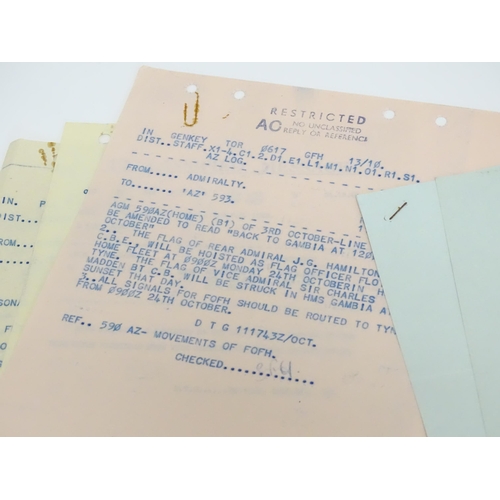 RESTRICTED
AO NO UNCLASSIFIED
REPLY OR REFERENCE
IN GENKEY TOR 0617 GFH 13/10.
DIST..STAFF.X1-4.C1.2.D1.E1.L1.M1.N1.O1.R1.S1.
AZ LOG.
FROM..... ADMIRALTY.
TO....... 'AZ' 593.
AGM 590AZ(HOME) (B1) OF 3RD OCTOBER-LINE
BE AMENDED TO READ "BACK TO GAMBIA AT 120
OCTOBER"
2.. THE FLAG OF REAR ADMIRAL J.G. HAMILTON
C.B.E., WILL BE HOISTED AS FLAG OFFICER FLO
HOME FLEET AT 0900Z MONDAY 24TH OCTOBERIN H
TYNE. THE FLAG OF VICE ADMIRAL SIR CHARLES
MADDEN BT C.B. WILL BE STRUCK IN HMS GAMBIA AT
SUNSET THAT DAY.
3..ALL SIGNALS FOR FOFH SHOULD BE ROUTED TO TYN
FROM 0900Z 24TH OCTOBER.
D T G 111743Z/OCT.
REF.. 590 AZ- MOVEMENTS OF FOFH.
CHECKED............
IN. P
DIST..
FROM...
TO